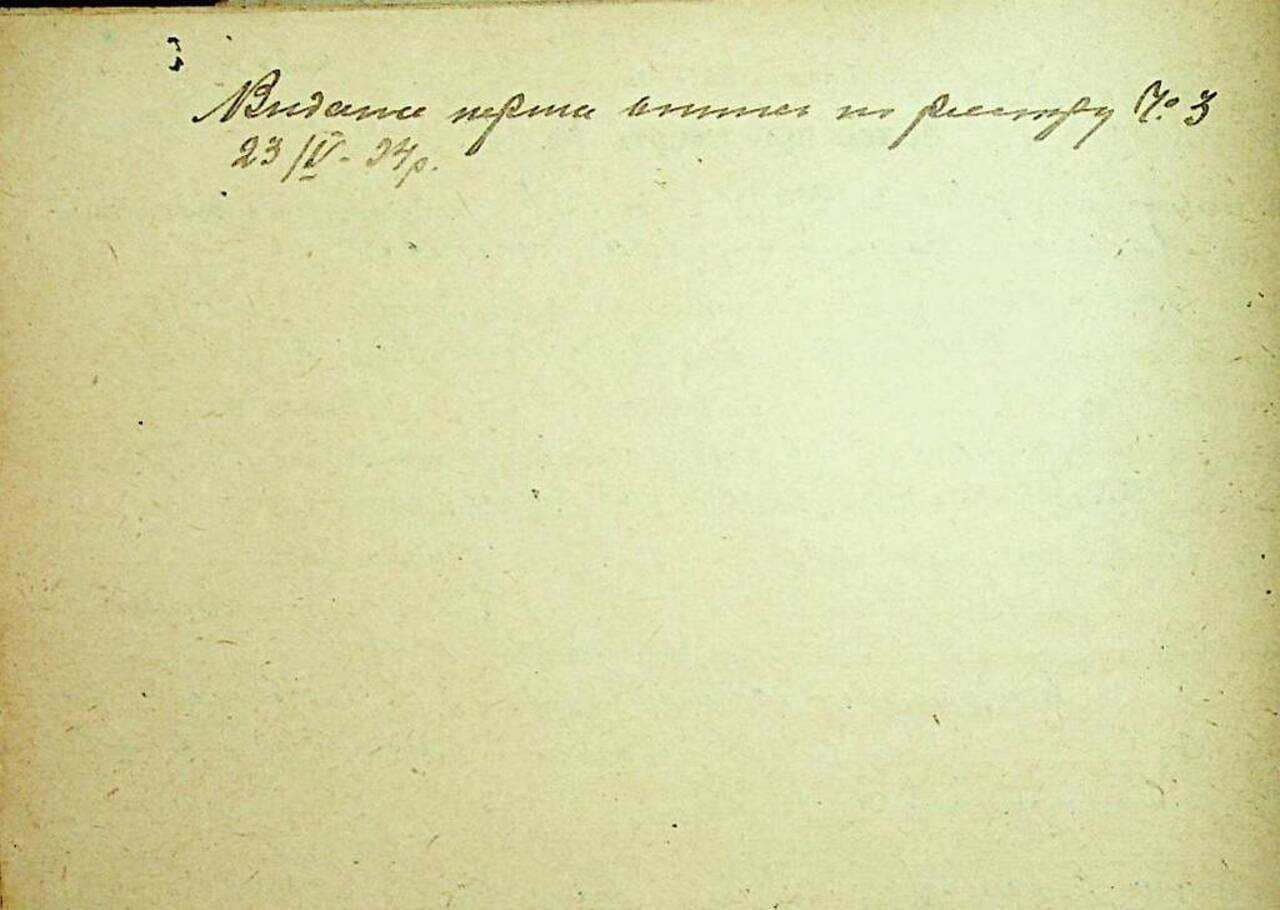 Видана перша виписъ по реєстру № 3
23/IV - 34р.